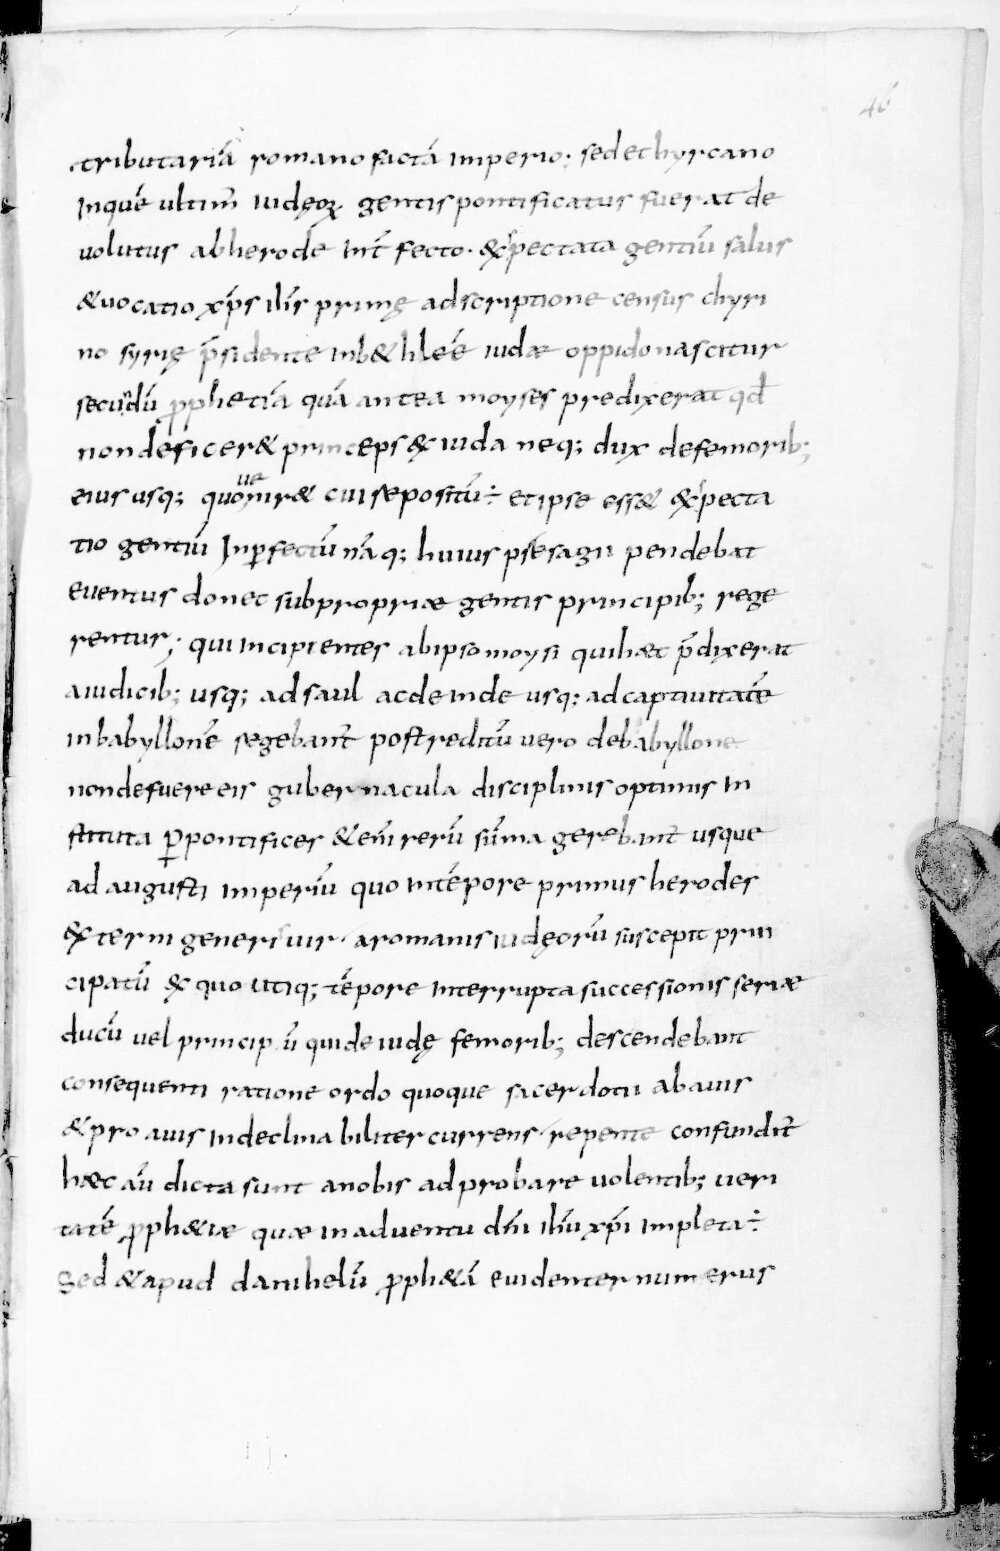 46
tributariā romano factā imperio; sed et hyrcano
In quē ultim̄ iudęoꝝ gentis pontificatus fuerat de
volutus ab herode Int̄fecto. &xpectata gentiū salus
& vocatio xp̄s ih̄s primę adscriptione census chyri
no syrię p̄sidente in b&hleē iudæ oppido nascitur
secundū ꝓphetiā quā antea moyses predixerat qđ
non deficer& princeps &x iuda neq; dux de femorib;
eius usq; quo uenir& cui repositū÷ et ipse ess& &xpecta
tio gentiū Inꝑfectū nāq; huius presagii pendebat
eventus donec sub propriæ gentis principib; rege
rentur; qui incipientes ab ipso moysi qui hæc p̄dixerat
a iudicib; usq; ad saul ac deinde usq; ad captiuitatē
in babyllonē regebant̄ post reditū vero de babyllone
non defuere eis gubernacula disciplinis optimis in
stituta ꝑ pontifices & eīn rerū sūma gerebant̄ usque
ad augusti imperiū quo intēpore primus herodes
&xterni generis uir a romanis iudęorū suscepit prin
cipatū &x quo utiq; tēpore interrupta successionis seriæ
ducū vel principū qui de iudę femorib; descendebant
consequenti ratione ordo quoque sacerdotii ab avis
& pro avis indeclinabiliter currens repente confundit̄
hæc aū dicta sunt a nobis adprobare volentib; veri
tatē ꝓph&iæ quæ in adventu dn̄i ih̄u xp̄i impleta÷
Sed & apud danihelū ꝓph&ā evidenter numerus